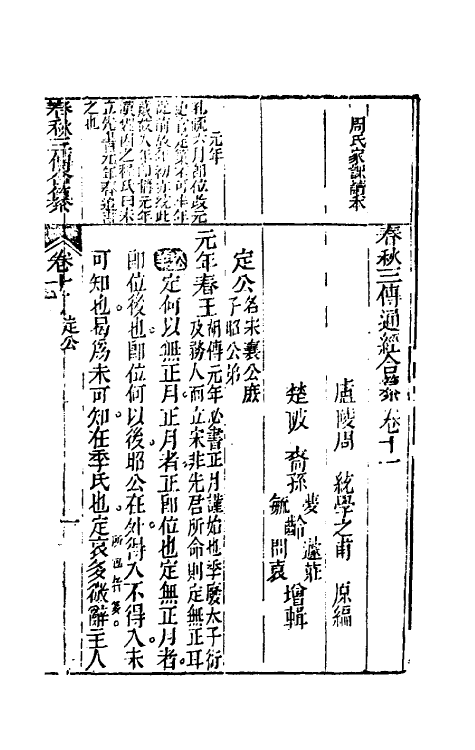 周氏家課讀本
春秋三傳通經合纂卷十一
廬陵周 統學之甫 原編
楚陂 裔孫
夢齡 蓮莊
毓齡 問袁
增輯
元年
孔疏六月即位改元
立先書元年春追書
之也
定公名宋襄公庶
子昭公弟
元年春王胡傳元年必書正月謹始也季廢太子衍
及務人而立宋非先君所命則定無正耳
公羊定何以無正月正月者正即位也定無正月者
即位後也即位何以後昭公在外得入不得入未
可知也曷為未可知在季氏也定哀多微辭主人
所函吾纂
春秋三傳合纂
卷十一
定公
一